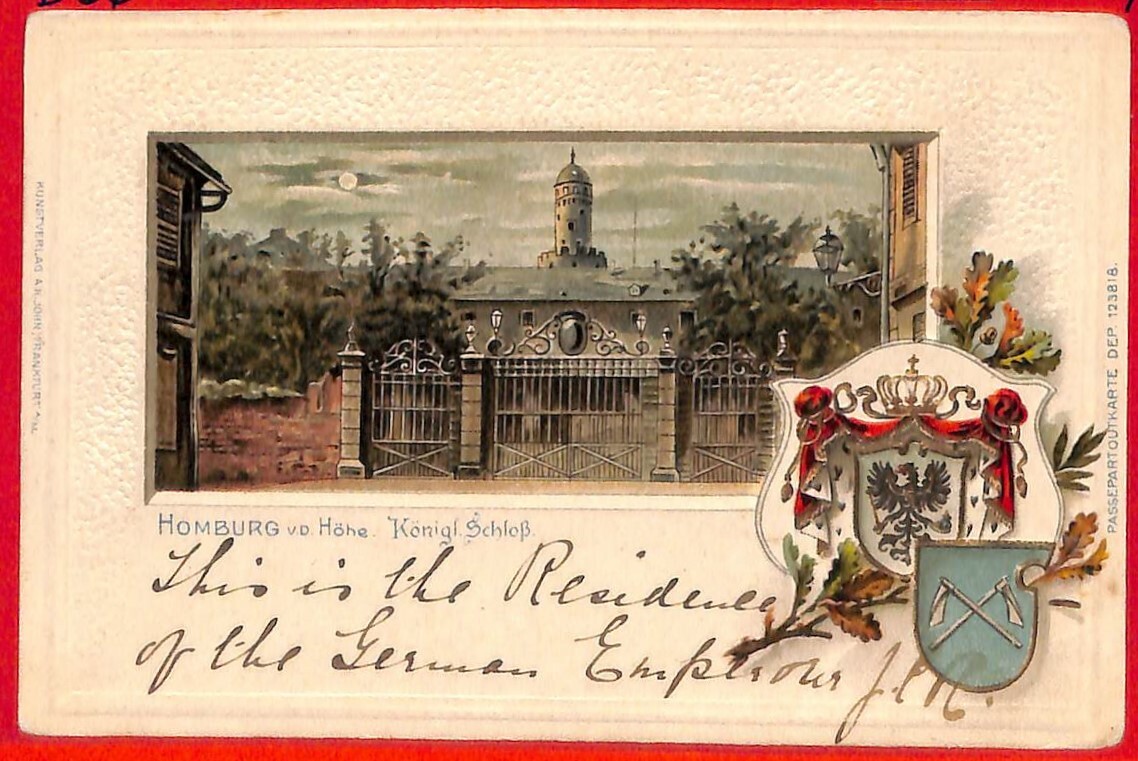 HOMBURG v.D. Höhe. Königl. Schloß.
This is the Residence
of the German Emperour J.C.R.
KUNSTVERLAG A.H. JOHN, FRANKFURT A/M.
PASSEPARTOUTKARTE DEP. 123818.